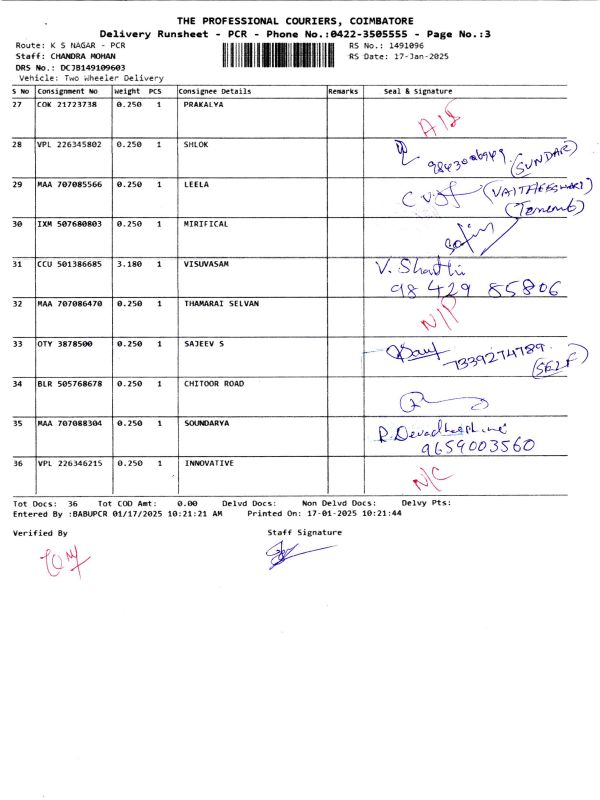 THE PROFESSIONAL COURIERS, COIMBATORE
Delivery Runsheet - PCR - Phone No.:0422-3505555 - Page No.:3
Route: K S NAGAR - PCR RS No.: 1491096
Staff: CHANDRA MOHAN RS Date: 17-Jan-2025
DRS No.: DCJB149109603
Vehicle: Two Wheeler Delivery
S No Consignment No Weight PCS Consignee Details Remarks Seal & Signature
27 COK 21723738 0.250 1 PRAKALYA
28 VPL 226345802 0.250 1 SHLOK (SUNDAR)
29 MAA 707085566 0.250 1 LEELA
30 IXM 507680803 0.250 1 MIRIFICAL
31 CCU 501386685 3.180 1 VISUVASAM V. Shathi
98 429 85806
32 MAA 707086470 0.250 1 THAMARAI SELVAN N/P
33 OTY 3878500 0.250 1 SAJEEV S 7339274789
(SELF)
34 BLR 505768678 0.250 1 CHITOOR ROAD
35 MAA 707088304 0.250 1 SOUNDARYA
9659003560
36 VPL 226346215 0.250 1 INNOVATIVE N/C
Tot Docs: 36 Tot COD Amt: 0.00 Delvd Docs: Non Delvd Docs: Delvy Pts:
Entered By :BABUPCR 01/17/2025 10:21:21 AM Printed On: 17-01-2025 10:21:44
Verified By Staff Signature